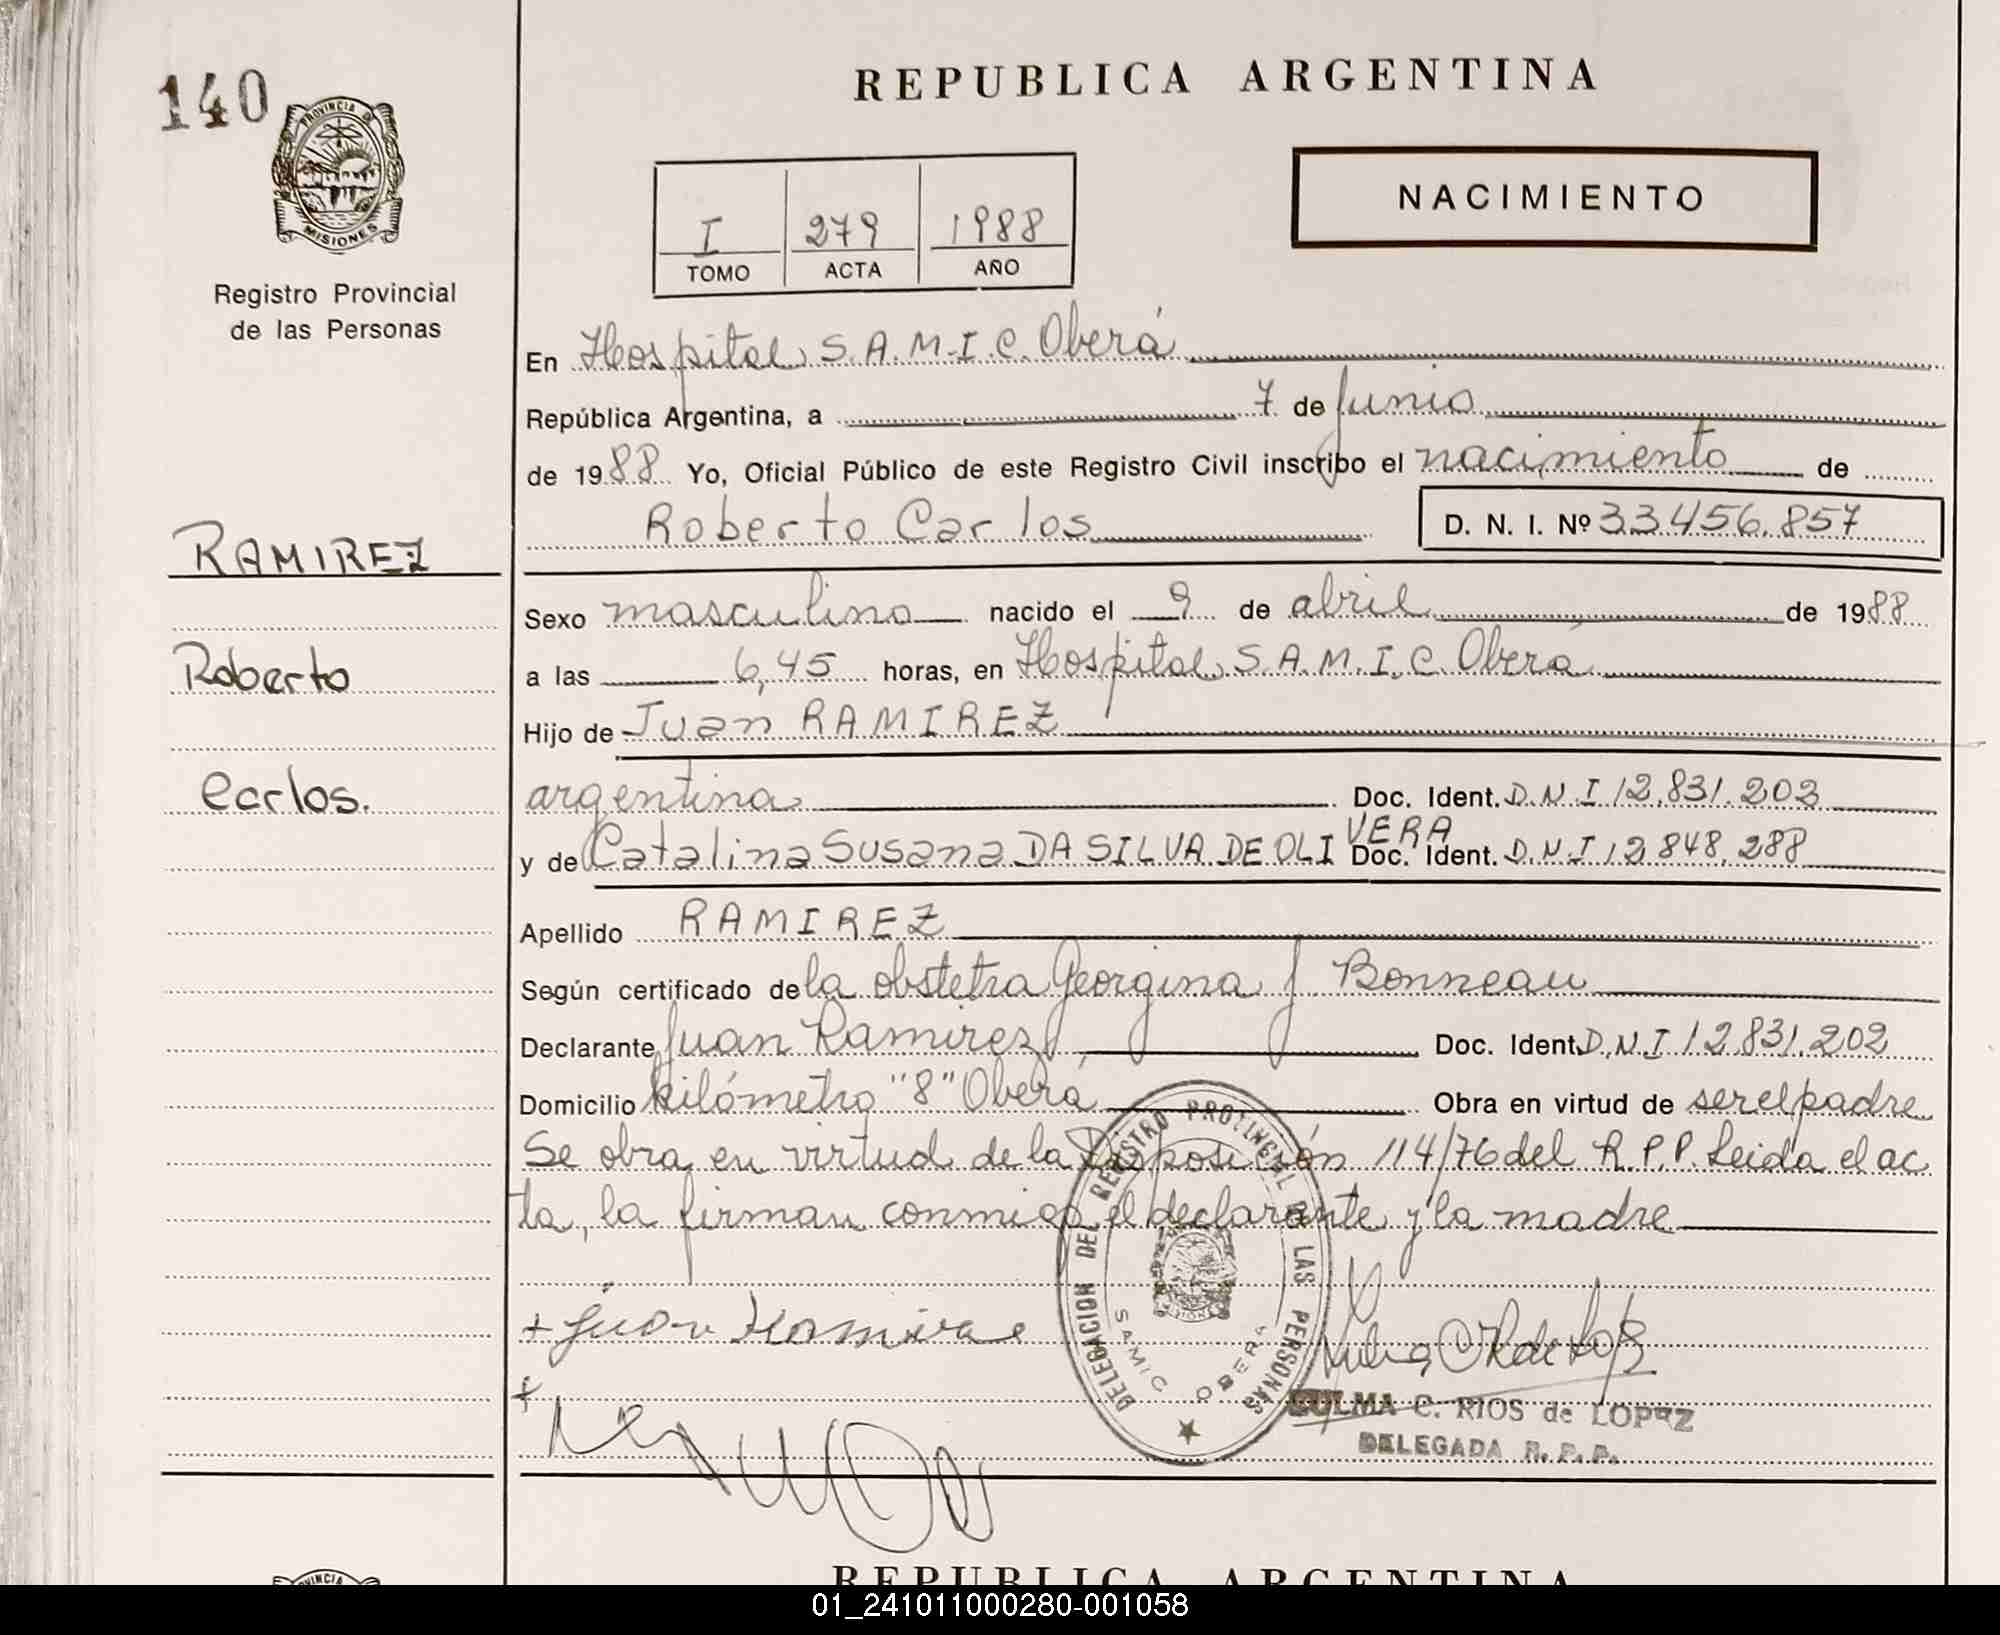 140
PROVINCIA DE
MISIONES
Registro Provincial
de las Personas
RAMIREZ
Roberto
Carlos.
REPUBLICA ARGENTINA
NACIMIENTO
I 279 1988
TOMO ACTA AÑO
En Hospital S.A.M.I.C. Oberá
República Argentina, a 7 de Junio
de 1988 Yo, Oficial Público de este Registro Civil inscribo el nacimiento de
Roberto Carlos D. N. I. Nº 33.456.857
Sexo masculino nacido el 9 de abril de 1988
a las 6,45 horas, en Hospital S.A.M.I.C. Oberá
Hijo de Juan RAMIREZ
argentina Doc. Ident. D.N.I 12.831.202
y de Catalina Susana DA SILVA DE OLIVERA Doc. Ident. D.N.I 12.848.288
Apellido RAMIREZ
Según certificado de la obstetra Georgina J Bonneau
Declarante Juan Ramirez Doc. Ident. D.N.I 12.831.202
Domicilio kilómetro "8" Oberá Obra en virtud de ser el padre
Se obra en virtud de la Disposición 114/76 del R.P.P. Leida el ac
ta, la firman conmigo el declarante y la madre
DELEGACION DEL REGISTRO PROVINCIAL DE LAS PERSONAS
SAMIC OBERA
MISIONES
+ Juan Ramirez
+
ZULMA C. RIOS de LOPEZ
DELEGADA R.P.P.
PROVINCIA
REPUBLICA ARGENTINA
01_241011000280-001058